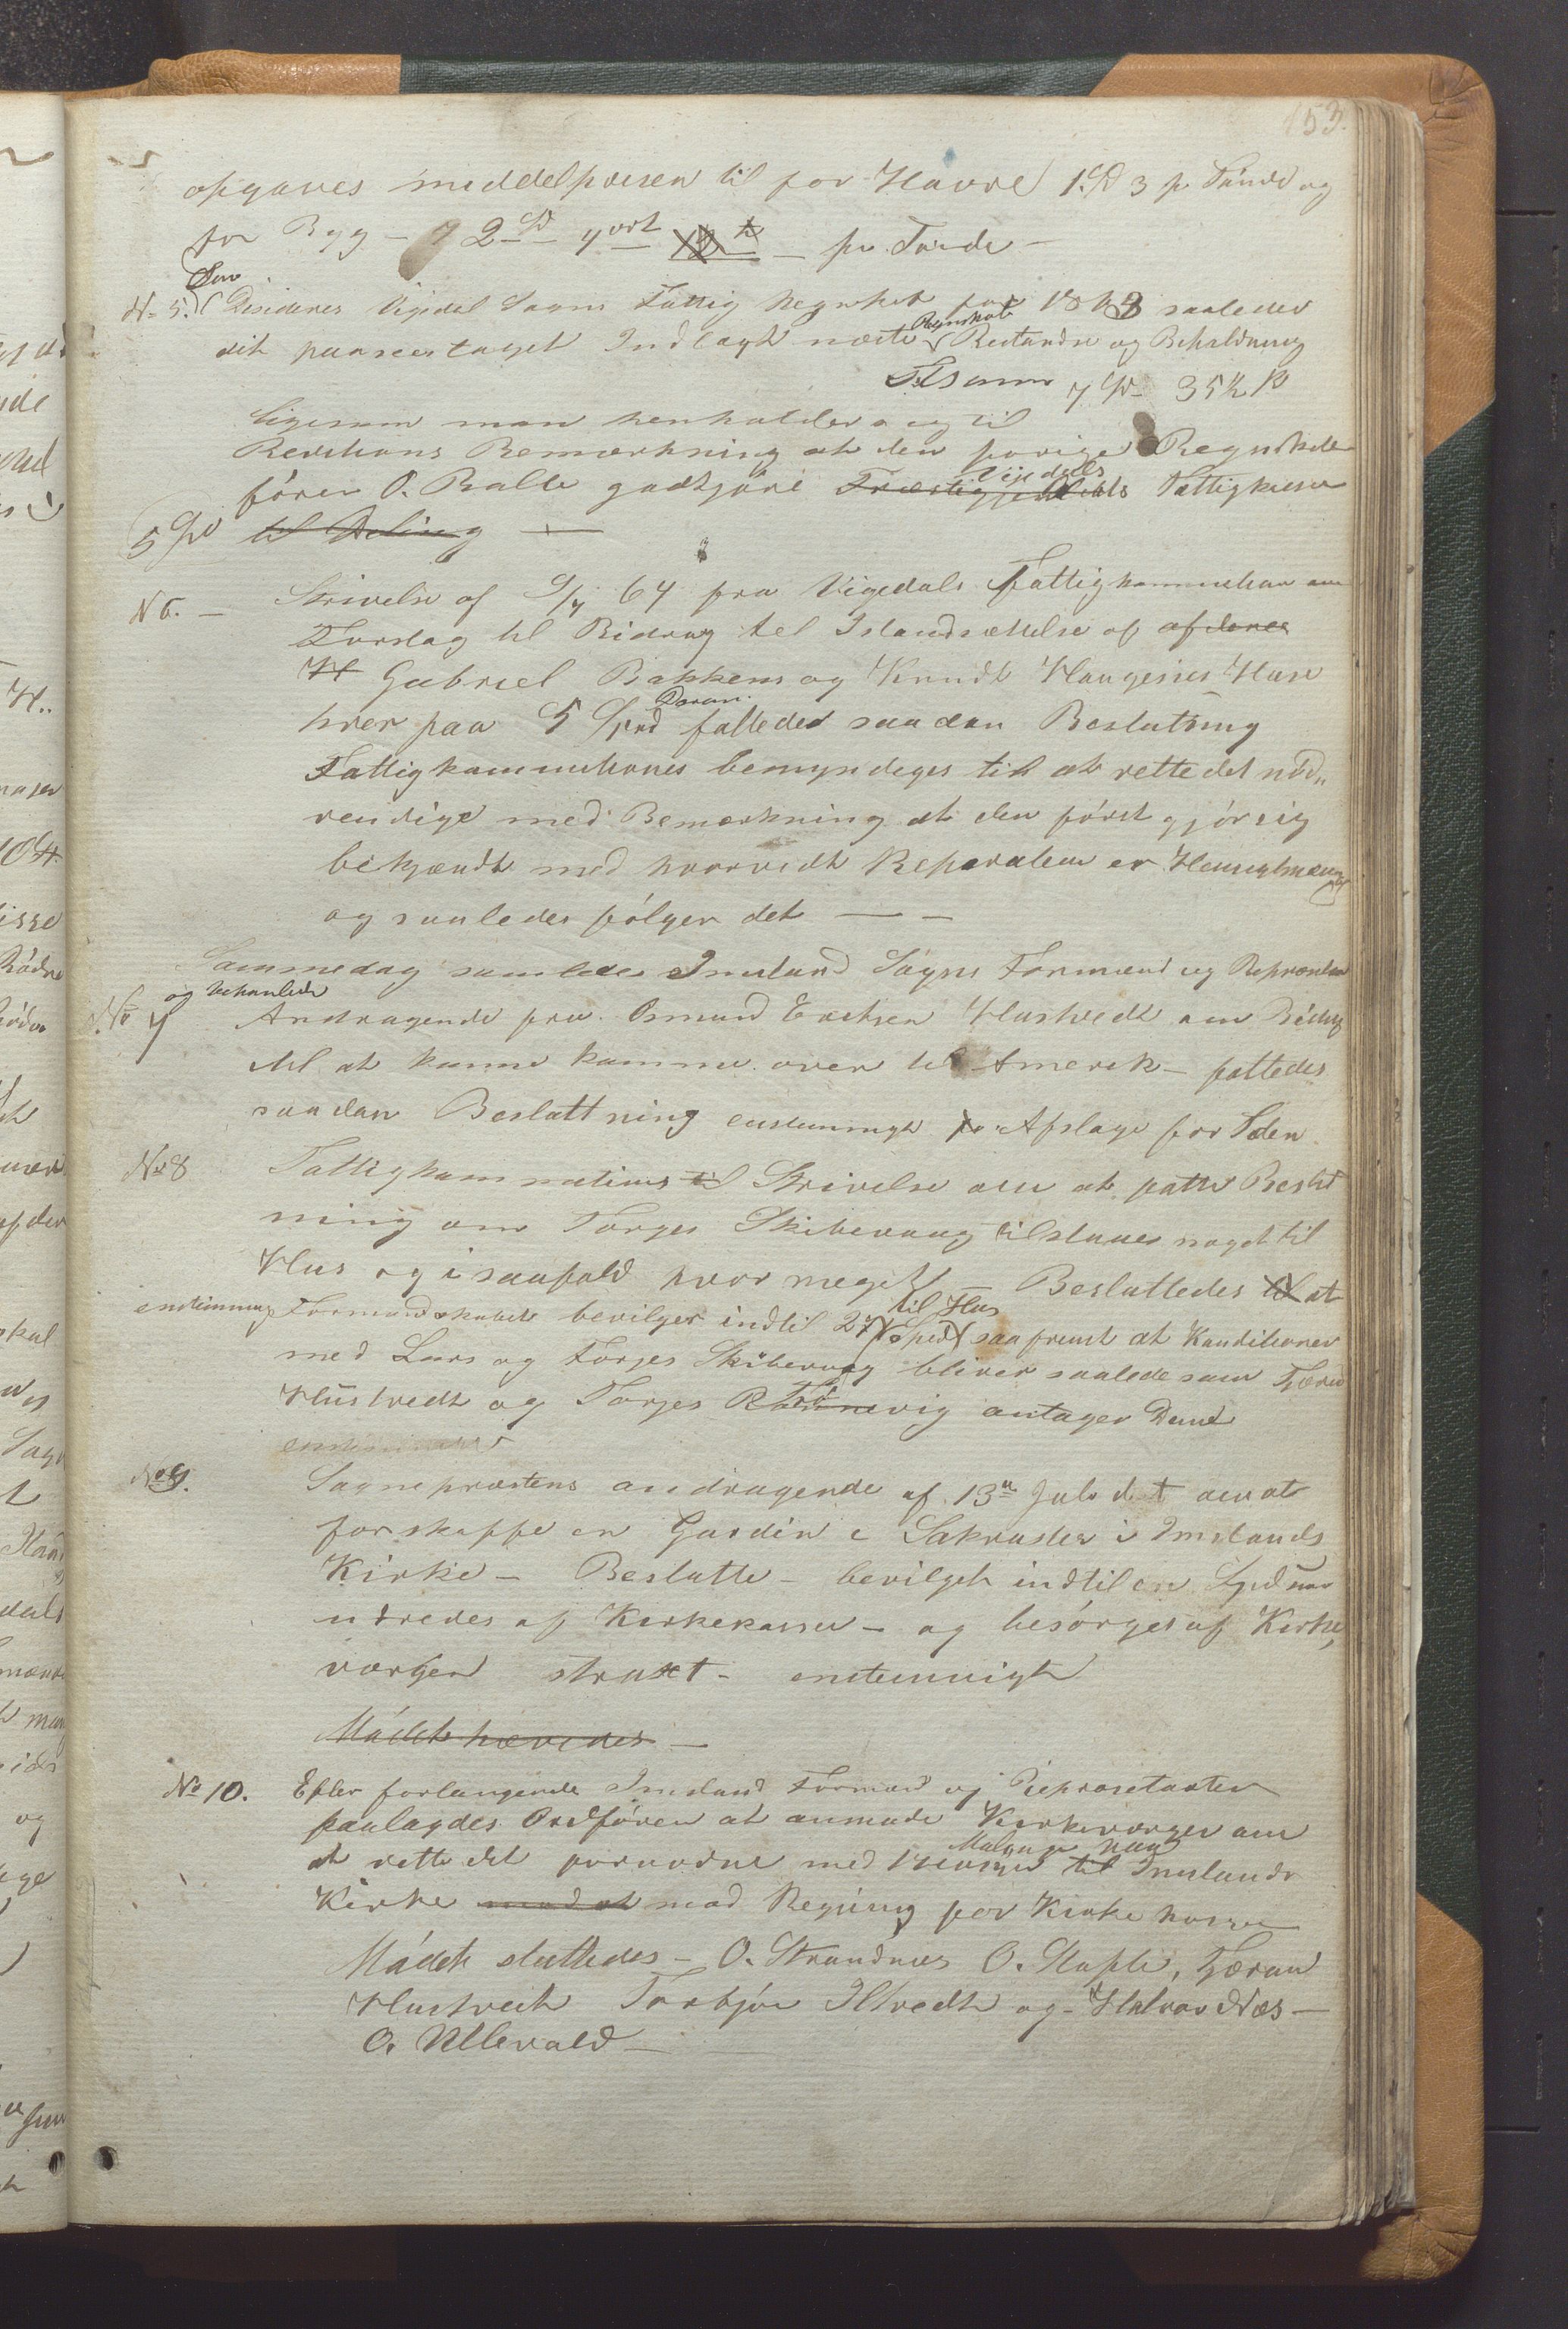 153.
opgaves middelprisen til for Havre 1 Spd 3 pr Tønde og
for Byg - 2 Spd 4 ort pr. Tønde -
N. 5. Desideres Vigedal Sogns Fattig Regnskab for 1863 saaledes
dit Indlagt næste Regnskab Restandse og Beholdning
7 Spd 35 ß
ligesom man henholder sig til
Revisions Bemærkning at den forige Regnskabs
fører O. Balle godtgjøre Vigedals Fattigkasse
5 Spd til Deling -
N 6. - Skrivelse af 9/7 64 fra Vigedals Fattigkommission om
Forslag til Bidrag til Istandsættelse af afdøres
Gabriel Bakkens og Knudt Haugenes Huse
hver paa 5 Spd Derom fattedes saadan Beslutning
Fattigkommissionen bemyndiges til at rette det nød„
vendige med Bemærkning at den først gjør sig
bekjændt med hvorvidt Reparation er Hensigtmæssig
og saaledes følger det - -
Sammedag samledes Imsland Sogns Formænd og Repræsentan
og behanlede
No 7 Andragende fra Osmund Erichsen Hustvedt om Bidrag
til at kunne komme over til Amerik - fattedes
saadan Beslattning enstemmigt Afslage for Tiden
No 8 Fattigkommissions Skrivelse om at fatte Beslut
ning om Torges Skibevaag tilstaaes noget til
Hus og i saafald hvor meget - Besluttedes at
enstemmig Formandskabet bevilger indtil 2 Spd til Hus saafremt at Konditioner
med Lars og Torges Skibevaag bliver saalede som Tjæran
Hustvedt og Torges antager Dem
No 9. Sognepræstens andragende af 13de Juli d. t om at
forskaffe en Gardin i Sakrastiet i Imslands
Kirke - Beslutte - bevilget indtil en Spd som
udredes af Kirkekassen - og besørges af Kirke,
værgen straxt - enstemmigt
Mødet hævedes -
No 10. Efter forlangende Imsland Formænd og Repræsetanter
paalagdes Ordføren at anmode Kirkeværgen om
at rette det fornødne med Imslands
Kirke med at mod Regning for Kirke kassen
Mødet sluttedes - O. Strandnæs O. Stople, Tjæran
Hustvedt Torbjørn Iltvedt og - Halvor Næs -
O. Ullevald -